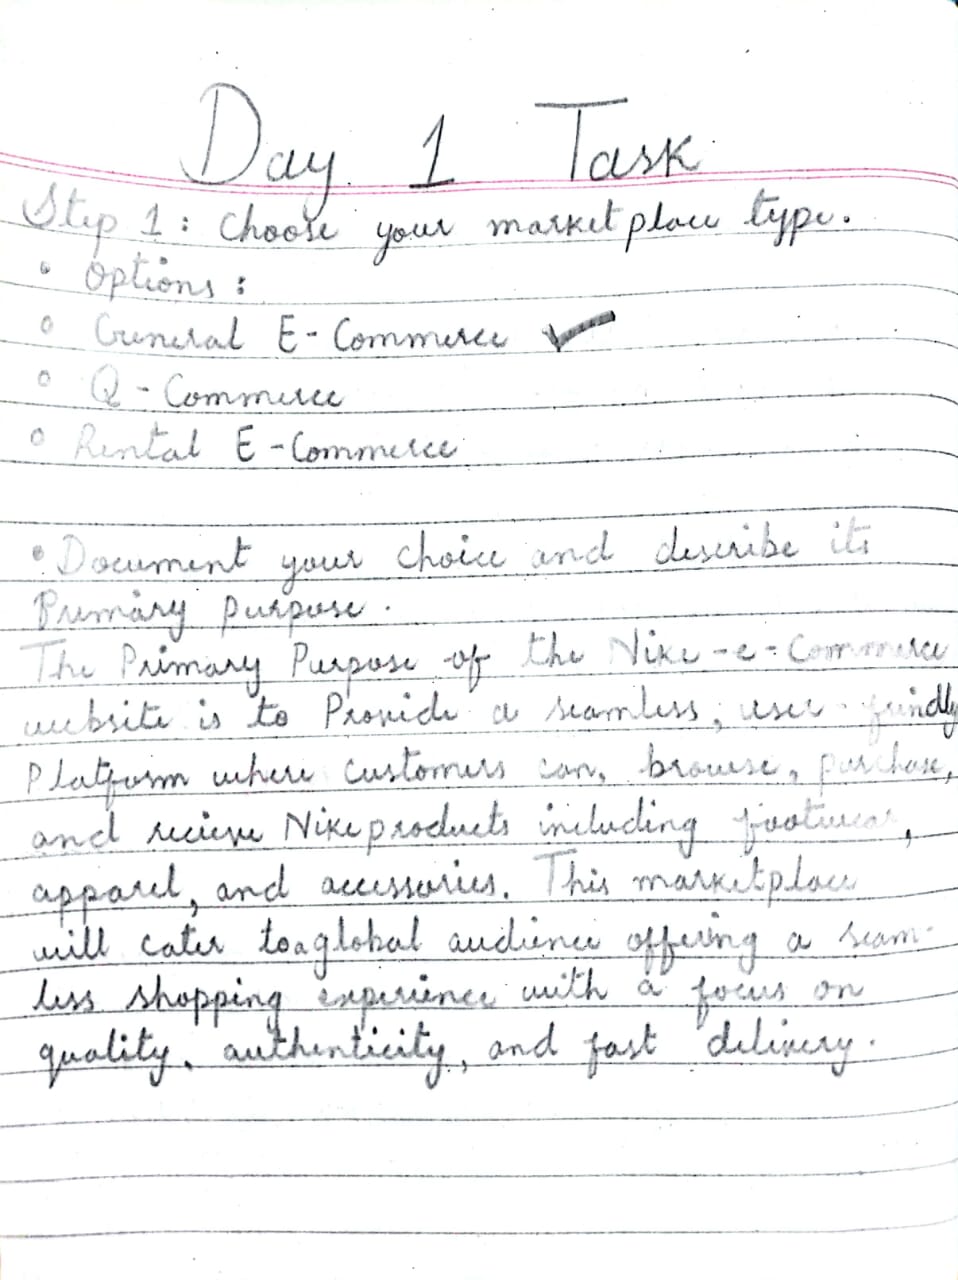 Day 1 Task
Step 1: Choose your marketplace type.
• Options:
○ General E-Commerce ✓
○ Q-Commerce
○ Rental E-Commerce
• Document your choice and describe its
Primary purpose.
The Primary Purpose of the Nike-e-Commerce
website is to Provide a seamless, user-friendly
Platform where customers can, browse, purchase,
and recieve Nike products including footwear,
apparel, and accessories. This marketplace
will cater to a global audience offering a seam-
less shopping experience with a focus on
quality, authenticity, and fast delivery.